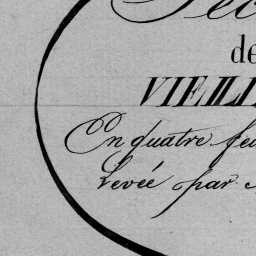 de
VIEILL
En quatre feu
Levée par